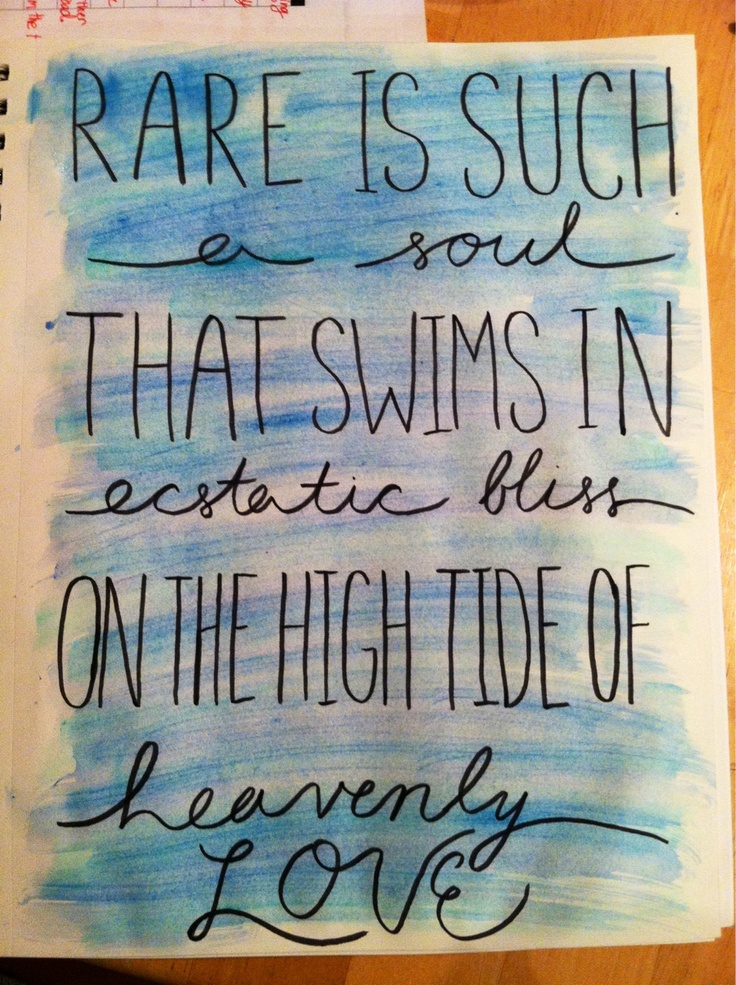 RARE IS SUCH
a soul
THAT SWIMS IN
ecstatic bliss
ON THE HIGH TIDE OF
heavenly
LOVE